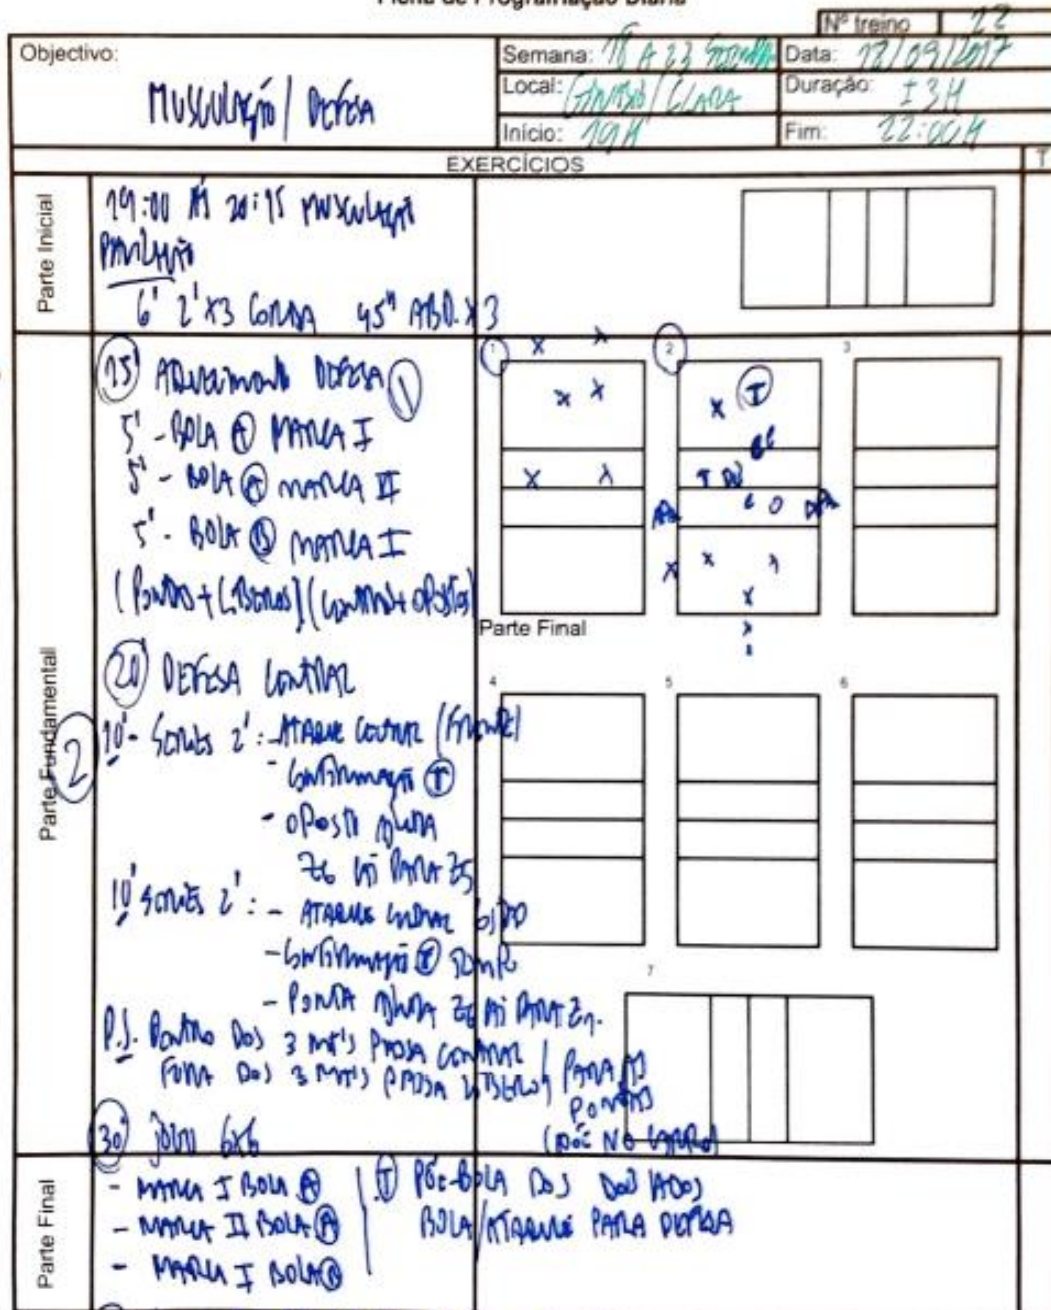 Ficha de Programação Diária
Nº treino 22
Objectivo:
MUSCULAÇÃO / DEFESA
Semana: 18 A 23
Data: 18/09/2017
Local: / CLARA
Duração: ± 3H
Início: 19H
Fim: 22:00H
EXERCÍCIOS
T
Parte Inicial
19:00 ÀS 20:15 MUSCULAÇÃO
PAVILHÃO
6' 2'x3 CORDA 45" ABD. x 3
Parte Fundamental
15' AQUECIMENTO DEFESA 1
5' - BOLA A MARCA I
5' - BOLA A MARCA II
5' - BOLA B MARCA I
(PONTAS + LIBEROS) (CENTRAL + OPOSTOS)
1
2
3
Parte Final
20' DEFESA CENTRAL
2
10' - SERIES 2': - ATAQUE CENTRAL (FRENTE)
- CONFIRMAÇÃO T
- OPOSTO AJUDA
Z6 VAI PARA Z5
10' SERIES 2': - ATAQUE CENTRAL
- CONFIRMAÇÃO T
- PONTA AJUDA Z6 VAI PARA Z1.
4
5
6
7
DENTRO DOS 3 MTS PASSA CENTRAL
FORA DOS 3 MTS PASSA LIBERO
PARA AS
PONTAS
30' JOGO 6x6
Parte Final
- MARCA I BOLA A
- MARCA II BOLA A
- MARCA I BOLA B
T PÕE BOLA DOS DOIS LADOS
BOLA/ATAQUE PARA DEFESA